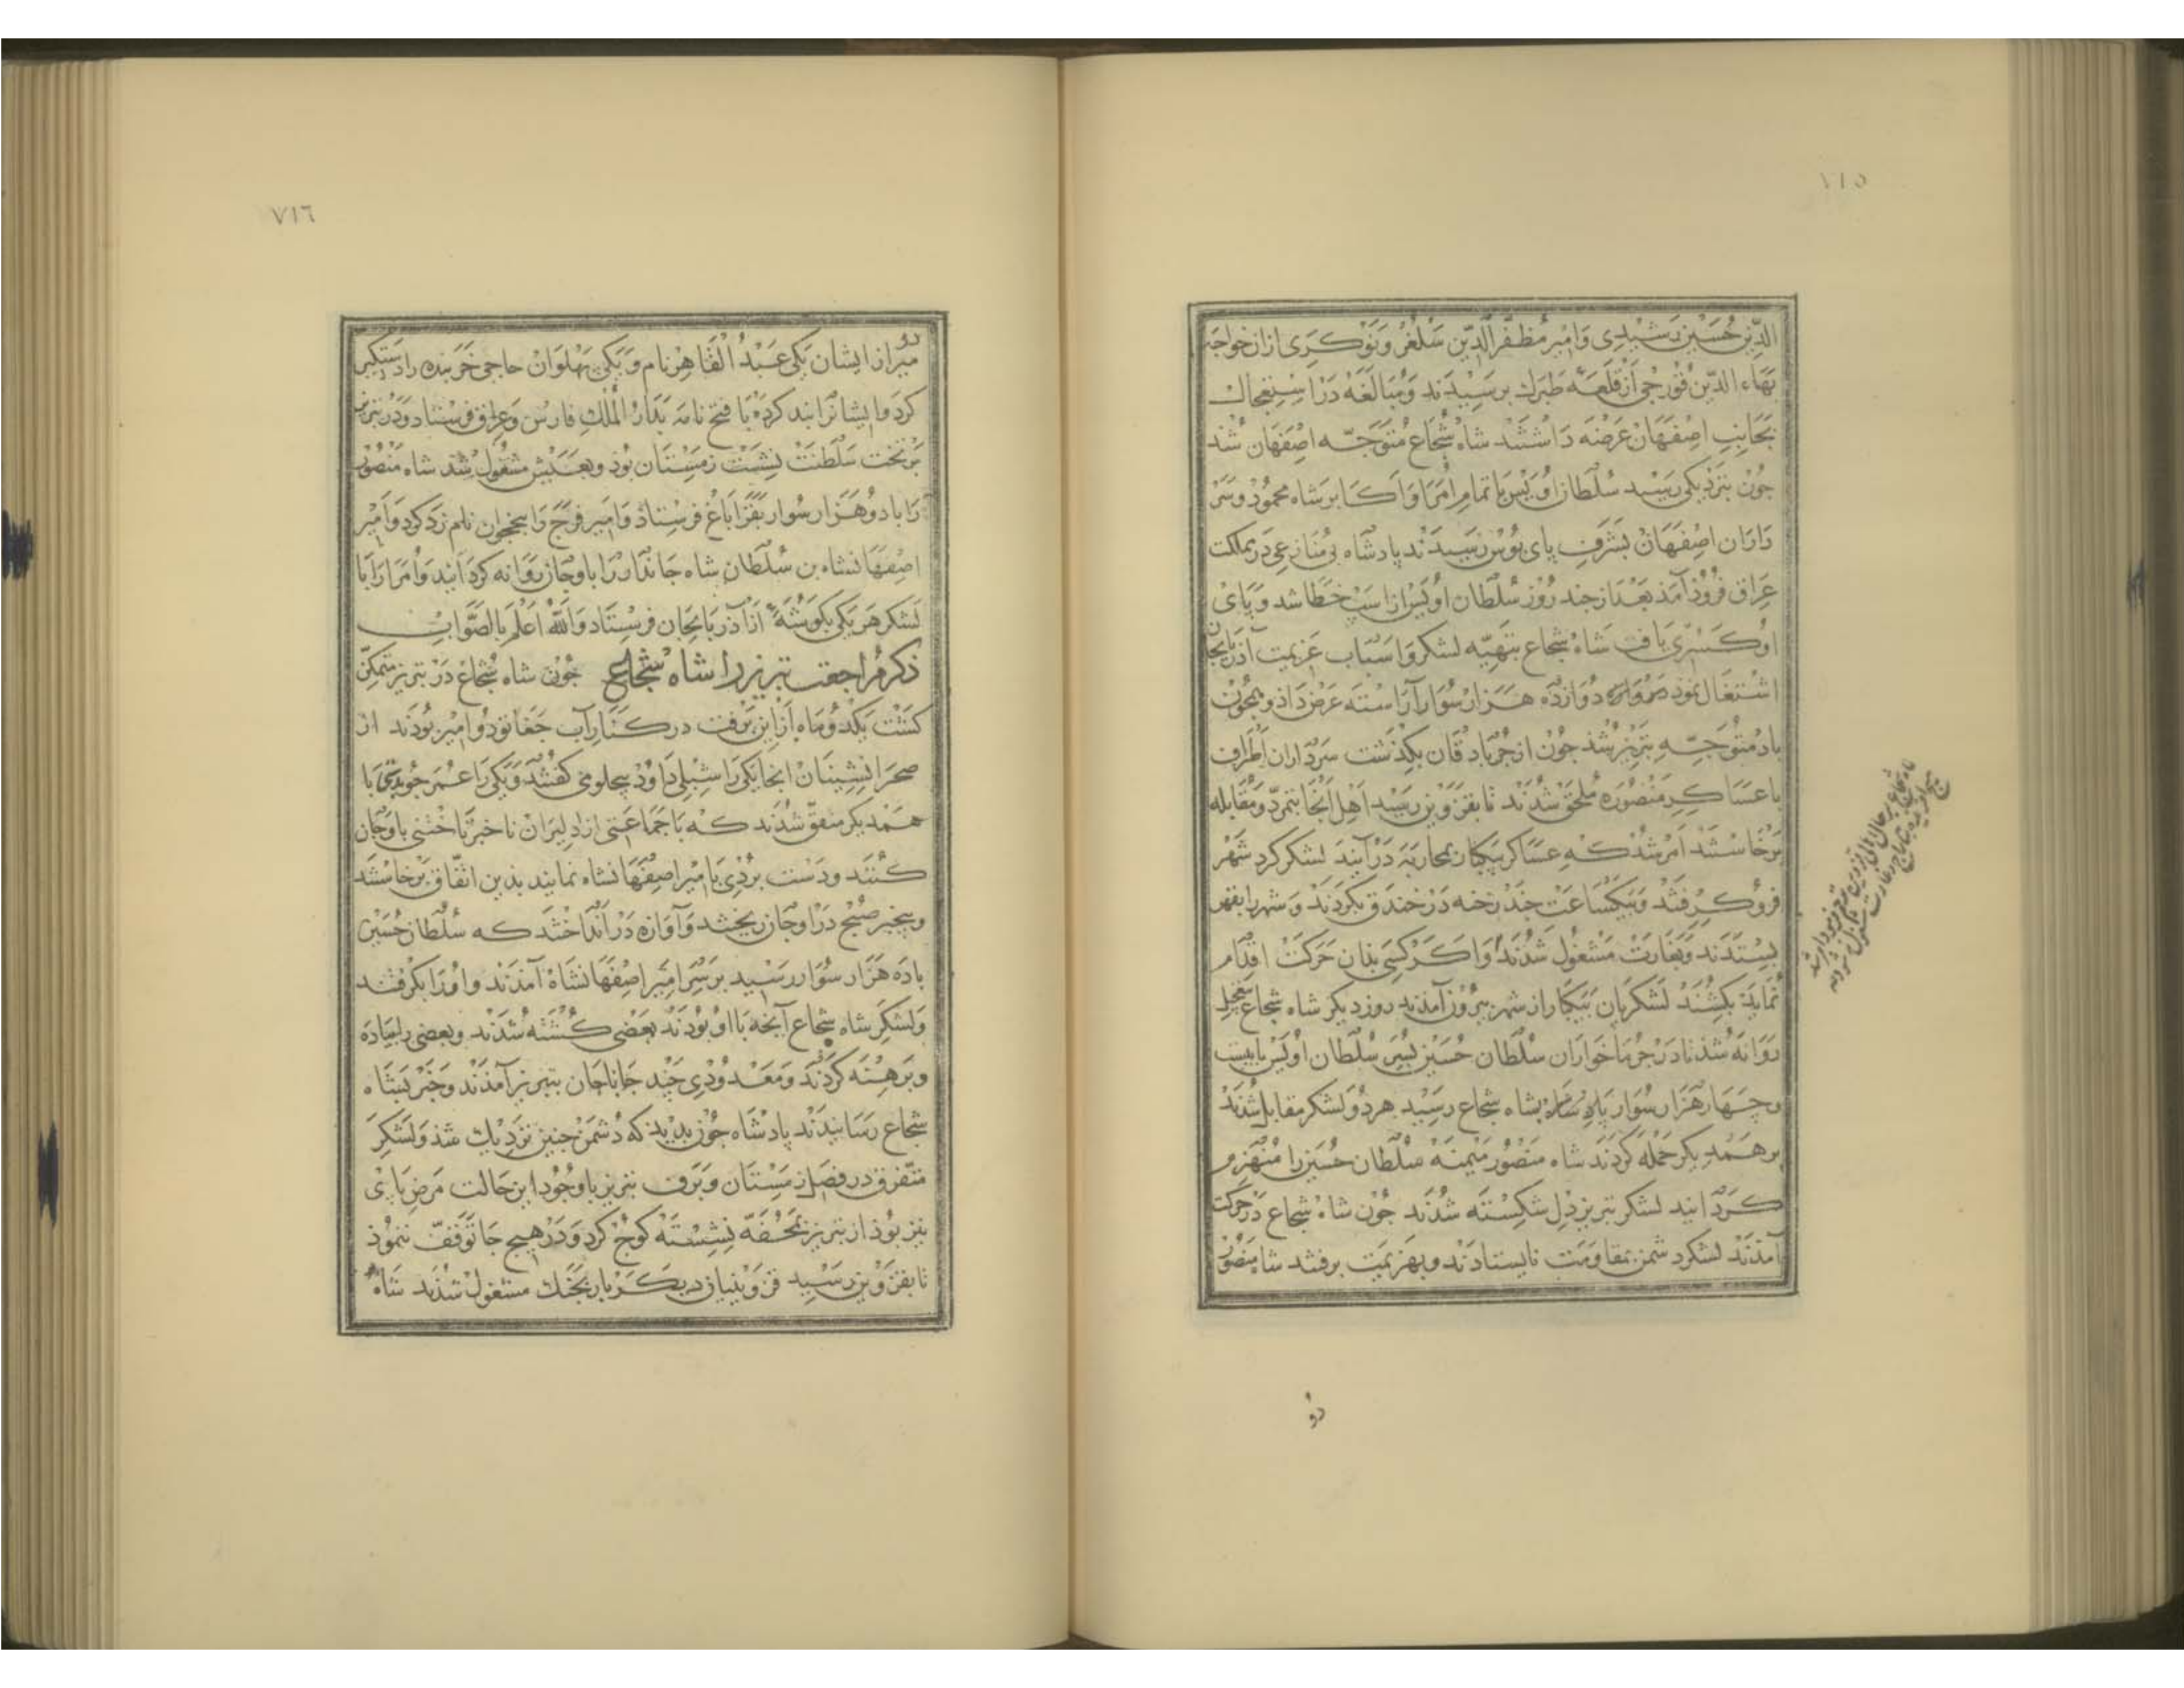 ٧١٥
الدّین حُسَیْن رَشیْدِی وَامِیْر مُظفّر الدّیْن سَلْغُرْ وَنَوْکَرِی ازان خواجَه
بَهَاء الدّیْن قُورْجی اَزْ قَلْعَهٔ طَبَرك بَرَسِیْدَند وَمُبَالَغَه دَرْ اسْتِعْجَال
بجَانِبِ اصْفَهَانْ عَرْضَه دَاشْتَنْد شاهْ شُجَاع مُتَوَجّه اصْفَهَان شُد
جُوْن بنَزْدِیکی رَسِیْد سُلْطَان اُوَیْس بَا تمام اُمَرَا وَاَکابر شَاه محمُوْد وَسَرْ
دَارَان اصْفَهَانْ بَشَرَفِ پای بُوْس رَسِیْدَنْد پادشَاه بی مُنَازِعی دَرْ مملکت
عِرَاق فُرُوْد آمَذ بَعْدَ از چند رُوْز سُلْطَان اُوَیْس از اسْپْ خَطَا شد وَپَای
اوْ کَسْرِی یَافت شَاهْ شُجَاع بتَهِیّه لشکر وَاسْبَاب عَزیمت آذَرْبایجان
اشْتغَال نمُود دوازْدَه هَزارْ سُوَار آرَاسْتَه عَرْض دَاذ وهمجُوْن
بادْ مُتَوَجّهِ تبْرِیْز شُذ جُوْن از جُرْبَادقَان بکذَشت سَرْدَاران اَطْرَاف
باعَسَاکِرِ مَنْصُوْرَه مُلْحَق شُدَنْد تا بقَزوِیْن رَسِیْد اَهْل آنْجَا بتَمرّد وَمُقَابله
بَرْخَاسْتَنْد اَمْر شُدْ کهِ عَسَاکر بیَکبار بمحَارَبَه دَرْ آیَنْد لشکر کِرد شَهْر
فُرُو کِرِفتَنْد وَبیکْسَاعَتْ چَنْد رَخنه دَرْ خنْدَق بکردَنْد وَشهر را بقهر
بِسْتَدَنْد وَبغَارَتْ مَشغُول شُدَنْد وَاکَرْ کَسِی بذان حَرَکَتْ اقدَام
نُمَایَد بکشنَنْد لَشکریَان بیَکبار از شهر بیْرُوْن آمَذند روز دیکر شاه شجاع بتعْجیل
رَوَانَهْ شُذ تا دَرْ جُرمَاخواران سُلْطَان حُسَیْن پسَر سُلْطَان اُوَیْس با بیست
وچَهَارْ هَزَار سُوَار بشاه شجاع رسِیْد هردُو لَشکر مقابل شُدَنْد
بر هَمْدِیکر حَمْله کردَنْد شاه منصُور مَیْمَنَهْ سُلْطَان حُسَیْن را مُنْهَزِم
کَرْدَانِید لَشکر تبریز دل شکِسْتَه شُدَنْد جُوْن شاهْ شُجاع دَرْ حرکت
آمَذَنْد لشکر دشمن بمقاوَمَت نایستادَنْد وبهَزیْمَت برفتند شاه منصُوْر
دو
٧١٦
دو
میر از ایشان یَکی عَبْدُ الْقَاهِرْ نام وَیَکی پَهْلَوَانْ حَاجی خَرْبَنده را دَسْتکیر
کرد وایشانرا بند کرْدَهْ بَا فتح نامَه بَدَارُ الْمُلْکِ فارْسْ وَعِرَاق فرسْتاد وَدَرْ تبریز
بَر تخت سَلْطَنَتْ بنشِسْت زمِسْتَان بُوْد وبعَیْش مَشْغُولْ شُد شاه مَنْصُوْر
رَا با دوْ هَزَار سُوَار بقَرَاباغْ فرسْتاد وَامِیر فَرّخ رَا بنخجوان نام زَد کرد وَامِیْر
اصْفَهَانشَاه بن سُلْطَان شاه جَاندَار رَا باوجَان رَوَانه کردَانید وَاُمَرَا رَا بَا
لَشکر هَر یَکی بکوشَهٔ اَزْ آذربَایجَان فرِسْتَاد وَاللهُ اَعْلَم بالصَّوَابِ
ذکر مُراجعت تبریز را شاهْ شُجَاع جُوْن شاه شُجَاعْ دَرْ تبریز مُتمکّن
کشت یَکْدُو مَاه اَزْ این بَرفت در کَنَارِ آب جَغَاتو دُوامِیْر بُوْدَند از
صحرَا نشِیْنان آنجا یَکی رَا شِبْلی دَاوُد یحلوی کفتند وَیَکی رَا عُمَر جُوبینی با
هَمْدیکر متّفق شُدَند که با جَمَاعَتی از دلِیرَان ناخبَرْ تاختنی باوجَان
کُنَند ودَسْت بُرْدِی با مِیْر اصْفَهَانشَاه نمایند بدین اتّفاق بَرخاسْتنَد
وبیخبر صُبْح دَرْ اوجَان ریختند وَآوَازه دَرْ انداختند که سُلْطَان حُسَیْن
بادَه هَزَار سُوَار رَسِیْد بَرْ سَر امِیْر اصْفَهَانشَاه آمَذنْد واوْ رَا بکرفتند
وَلشکر شاه شجاع آنچه با اوْ بُوْدَند بَعْضی کُشْتَه شُدَنْد وبعضی را پیَادَه
وبَرَهْنَه کَرْدَنْد وَمَعْدُوْدِی چَنْد جَانَاجان بتبریز آمَذَنْد وَخَبَر بشَاه
شجاع رَسَانِیدَنْد پادشَاه جُوْن بدید که دُشمَن چنین نزدِیك شُذ وَلَشکر
متفرّق در فصْل زمِسْتَان وَبَرْف تبریز باوجُوْد این حَالت مَرَض پای
نیز بُوْذ از تبریز بمحَفّه نِشِسْته کُوْج کَرد وَدَرْ هِیْج جا توقّف ننموْذ
تا بقَزوِیْن رَسِیْد قزوِینیان دیکَر بار بجَنْك مشغول شُدَند شاهْ